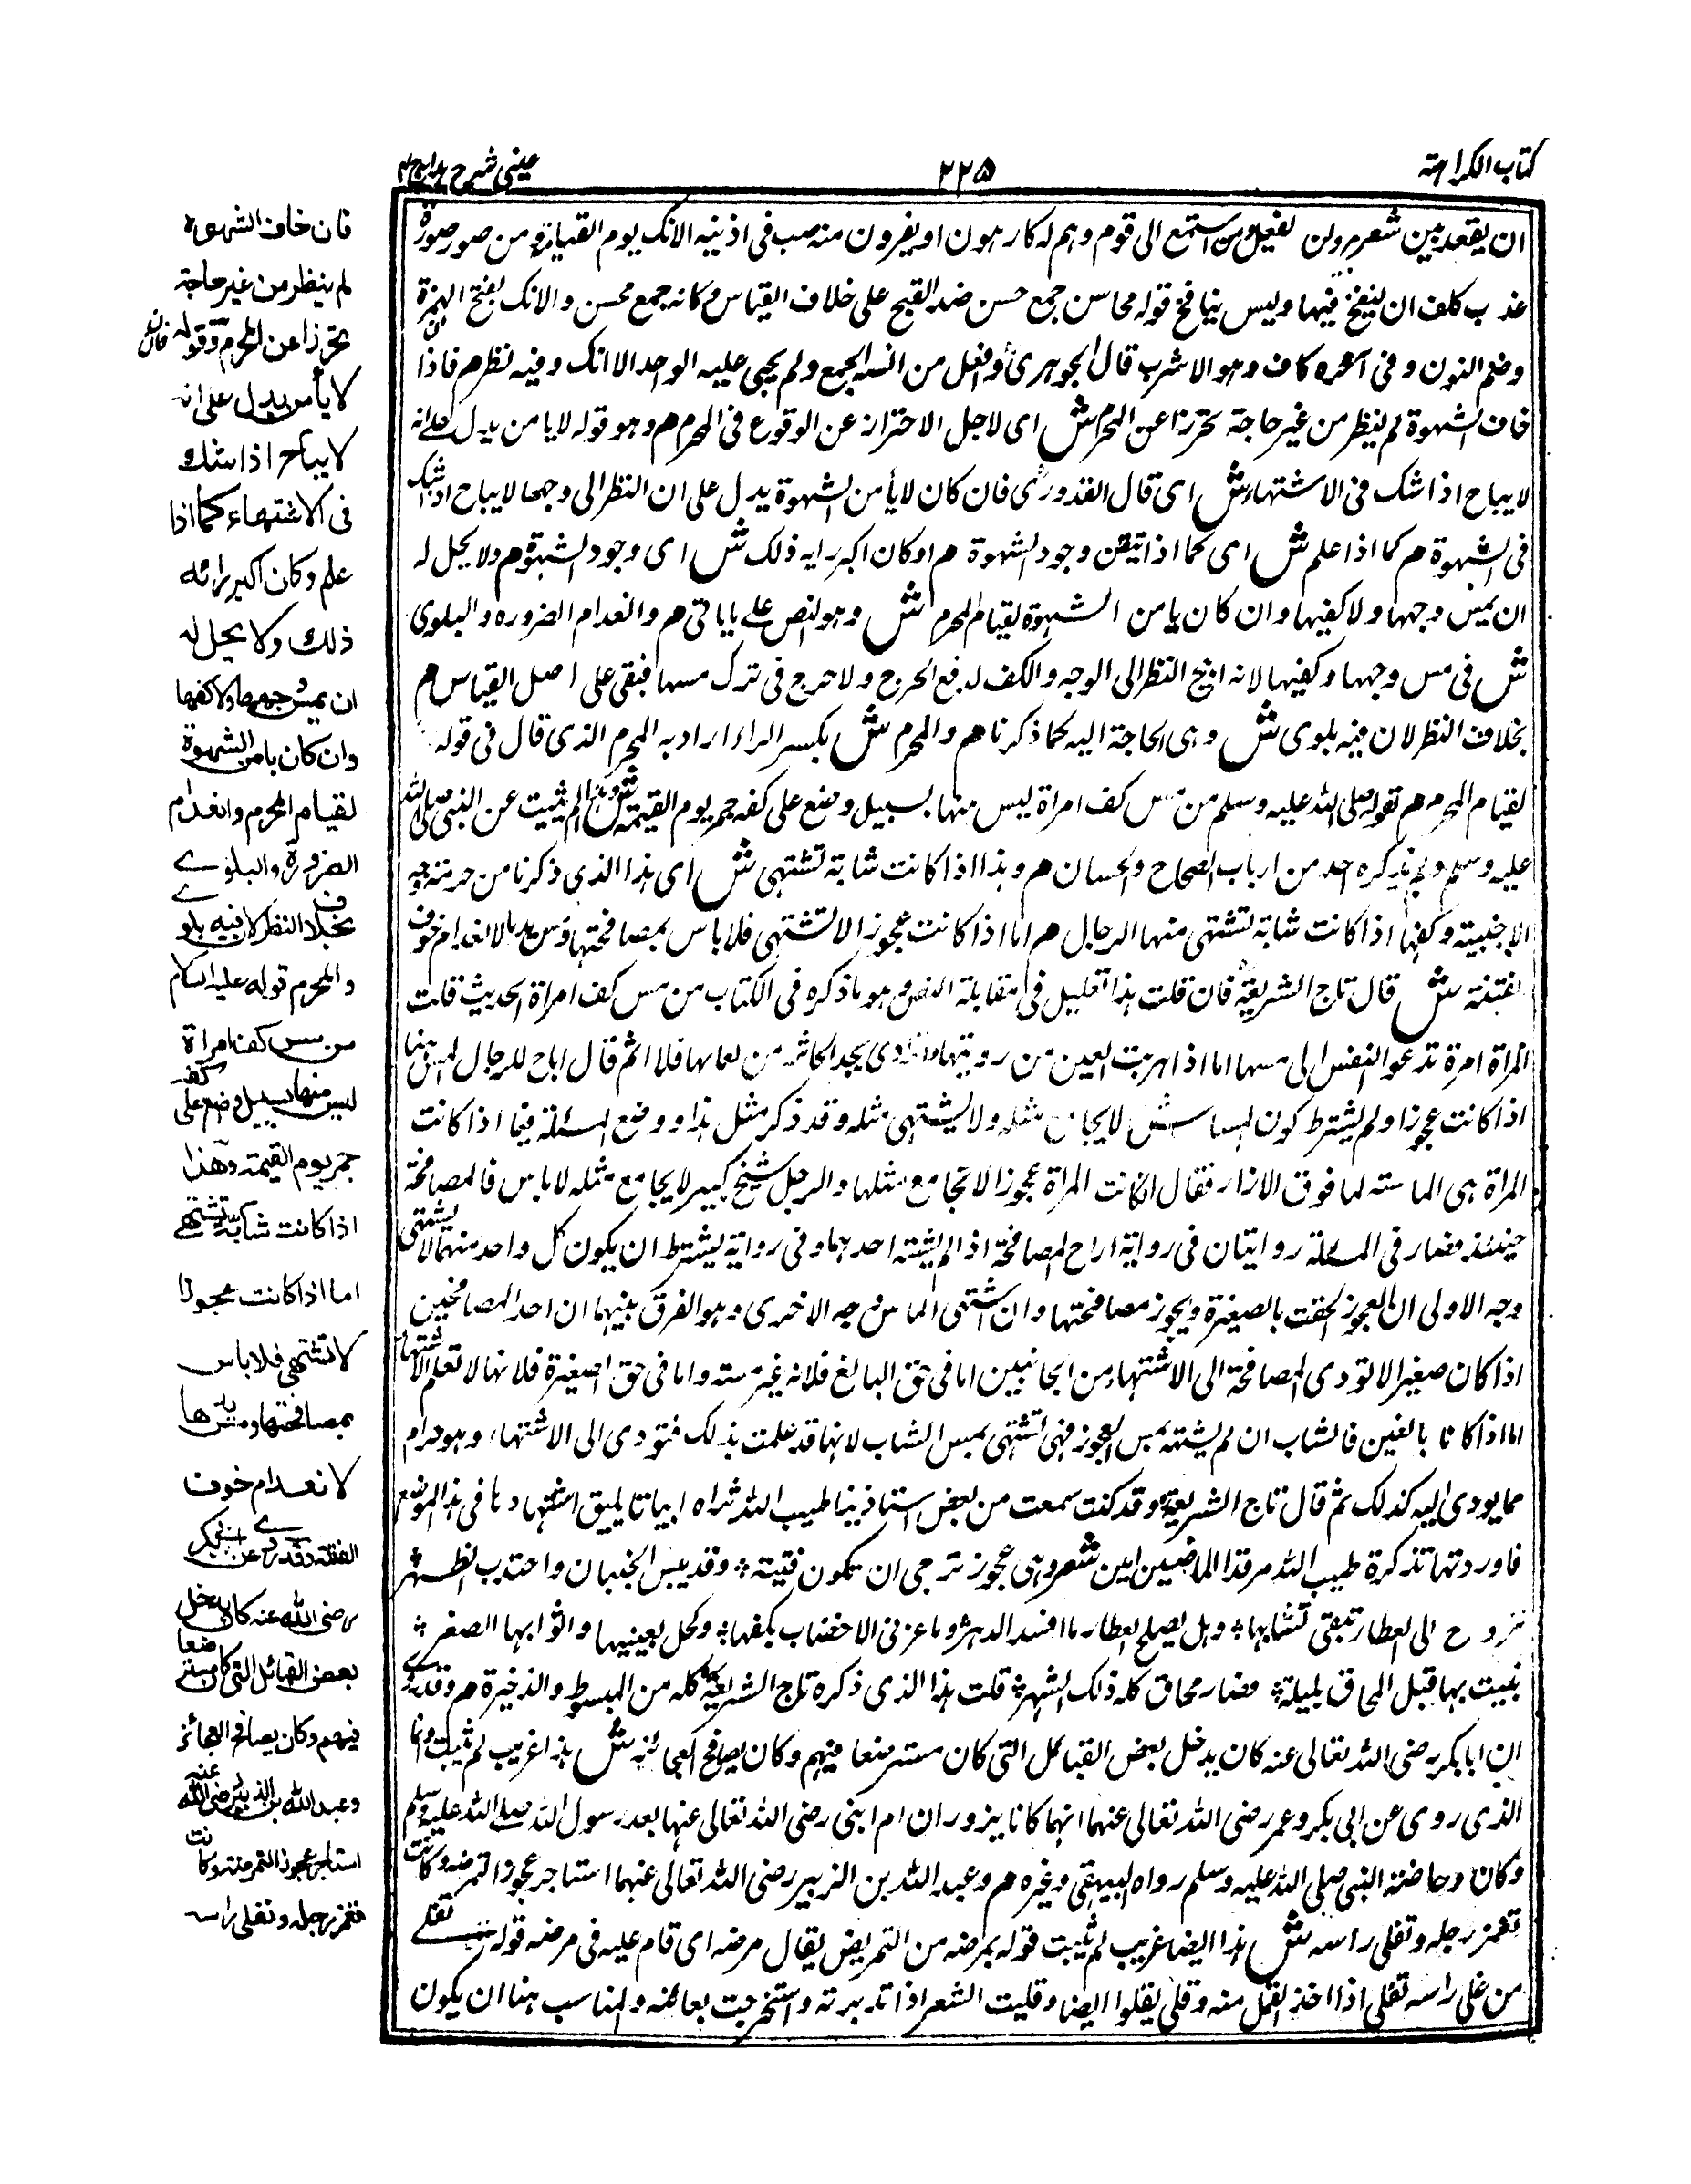 كتاب الكراهته
٢٢٥
عينى شرح هدايه ج ٤
ان يقعد بين شعيرين ولن يفعل ومن استمع الى قوم وهم له كارهون او يفرون منه صب فى اذنيه الانك يوم القيامة ومن صور صورة
عذب كلف ان ينفخ فيها وليس بنافخ قوله محاسن جمع حسن ضد القبح على خلاف القياس م كانه جمع محسن والانك بفتح الهمزة
وضم النون وفى آخره كاف وهو الاشرب قال الجوهرى وافعل من ابنية الجمع ولم يجى عليه الواحد الا انك وفيه نظر م فاذا
خاف الشهوة لم ينظر من غير حاجة تحرزا عن المحرم ش اى لاجل الاحتراز عن الوقوع فى المحرم م وهو قوله لا يامن يدل على انه
لا يباح اذا شك فى الاشتهاء ش اى قال القدورى فان كان لا يأمن الشهوة يدل على ان النظر الى وجهها لا يباح اذا شك
فى الشهوة م كما اذا علم ش اى كما اذا تيقن وجود الشهوة م او كان اكبر رايه ذلك ش اى وجود الشهوة م ولا يحل له
ان يمس وجهها ولا كفيها وان كان يامن الشهوة لقيام المحرم ش وهو النص على ما ياتى م وانعدام الضروره والبلوى
ش فى مس وجهها وكفيها لانه ابيح النظر الى الوجه والكف لدفع الحرج ولا حرج فى ترك مسها فبقى على اصل القياس م
بخلاف النظر لان فيه بلوى ش وهى الحاجة اليه كما ذكرنا م والمحرم ش بكسر الراء اراد به المحرم الذى قال فى قوله
لقيام المحرم م قوله صلى الله عليه وسلم من مس كف امراة ليس منها بسبيل وضع على كفه جمر يوم القيمة ش هذا لم يثبت عن النبى صلى الله
عليه وسلم ولم يذكره احد من ارباب الصحاح والحسان م وهذا اذا كانت شابة تشتهى ش اى هذا الذى ذكرنا من حرمة وجه
الاجنبية وكفها اذا كانت شابة تشتهى منها الرجال م اما اذا كانت عجوزا لا تشتهى فلا باس بمصافحتها ومس يدها لانعدام خوف
الفتنة ش قال تاج الشريعة فان قلت هذا تعليل فى مقابلة النص وهو ما ذكره فى الكتاب من مس كف امراة الحديث قلت
المراة امرة تدعو النفس الى مسها اما اذا هربت العين من رويتها فلا اثم قال اباح للرجال المس منها
اذا كانت عجوزا ولم يشترط كون الماس ش لا يجامع مثله ولا يشتهى مثله وقد ذكر مثل هذا ووضع المسئلة فيما اذا كانت
المراة هى الماسته لما فوق الازار فقال ان كانت المراة عجوزا لا تجامع مثلها والرجل شيخ كبير لا يجامع مثله لا باس فالمصافحة
حينئذ فصار فى المسئلة روايتان فى رواية اباح المصافحة اذا لم يشته احدهما وفى رواية يشترط ان يكون كل واحد منهما لا يشتهى
وجه الاولى ان العجوز الحقت بالصغيرة ويجوز مصافحتها وان اشتهى الماس وجه الاخرى وهو الفرق بينهما ان احد المصافحين
اذا كان صغيرا لا تودى المصافحة الى الاشتهاء من الجانبين اما فى حق البالغ فلانه غير مشته واما فى حق الصغيرة فلانها لا تعلم الاشتهاء
اما اذا كانا بالغين فالشاب ان لم يشته بمس العجوز فهى تشتهى بمس الشاب لانها قد علمت بذلك فتودى الى الاشتهاء وهو حرام
مما يودى اليه كذلك ثم قال تاج الشريعة وقد كنت سمعت من بعض استاذينا طيب الله ثراه ابياتا يليق استشهادها فى هذا الموضع
فاوردتها تذكرة طيب الله مرقد الماضيين امين شعر وهى عجوز ترجى ان تكون فتية ؛ وقد يبس الجنبان واحتدب الظهر ؛
تروح الى العطار تبقى شبابها ؛ وهل يصلح العطار ما افسد الدهر وما عزنى الا خضاب بكفها ؛ وكحل بعينيها واثوابها الصفر ؛
بنيت بها قبل المحاق بليلة ؛ فصار محاق كله ذلك الشهر ؛ قلت هذا الذى ذكره تاج الشريعة كله من المبسوط والذخيرة م وقد روى
ان ابا بكر رضى الله تعالى عنه كان يدخل بعض القبائل التى كان مسترضعا فيهم وكان يصافح العجائز ش هذا غريب لم يثبت وانما
الذى روى عن ابى بكر وعمر رضى الله تعالى عنهما انهما كانا يزوران ام ايمن رضى الله تعالى عنها بعد رسول الله صلى الله عليه وسلم
وكان وحاضنة النبى صلى الله عليه وسلم رواه البيهقى وغيره م وعبد الله بن الزبير رضى الله تعالى عنهما استاجر عجوز التمرضه وكانت
تغمز رجله وتفلى راسه ش هذا ايضا غريب لم يثبت قوله بمرضه من التمريض يقال مرضه اى قام عليه فى مرضه قوله تفلى
من فلى راسه تفلى اذا اخذ القمل منه وفلى يفلوا ايضا وفليت الشعر اذا تدبرته واستخرجت معانيه والمناسب هنا ان يكون
فان خاف الشهوة
لم ينظر من غير حاجة
تحرزا عن المحرم وقوله فان كان
لا يأمن يدل على انه
لا يباح اذا شك
فى الاشتهاء كما اذا
علم وكان اكبر رائه
ذلك ولا يحل له
ان يمس وجهها ولا كفها
وان كان يامن الشهوة
لقيام المحرم وانعدام
الضرورة والبلوے
بخلاف النظر لان فيه بلوے
والمحرم قوله عليه السلام
من مس كف امراة
ليس منها بسبيل وضع على كفه
جمر يوم القيمة وهذا
اذا كانت شابة تشتهے
اما اذا كانت عجوزا
لا تشتهى فلا باس
بمصافحتها ومس يدها
لانعدام خوف
الفتنة وقد روے عن ابى بكر
رضى الله عنه كان يدخل
بعض القبائل التى كان مسترضعا
فيهم وكان يصافح العجائز
وعبد الله بن الزبير رضى الله عنه
استاجر عجوزا لتمرضه وكانت
تغمز رجله وتفلى راسه